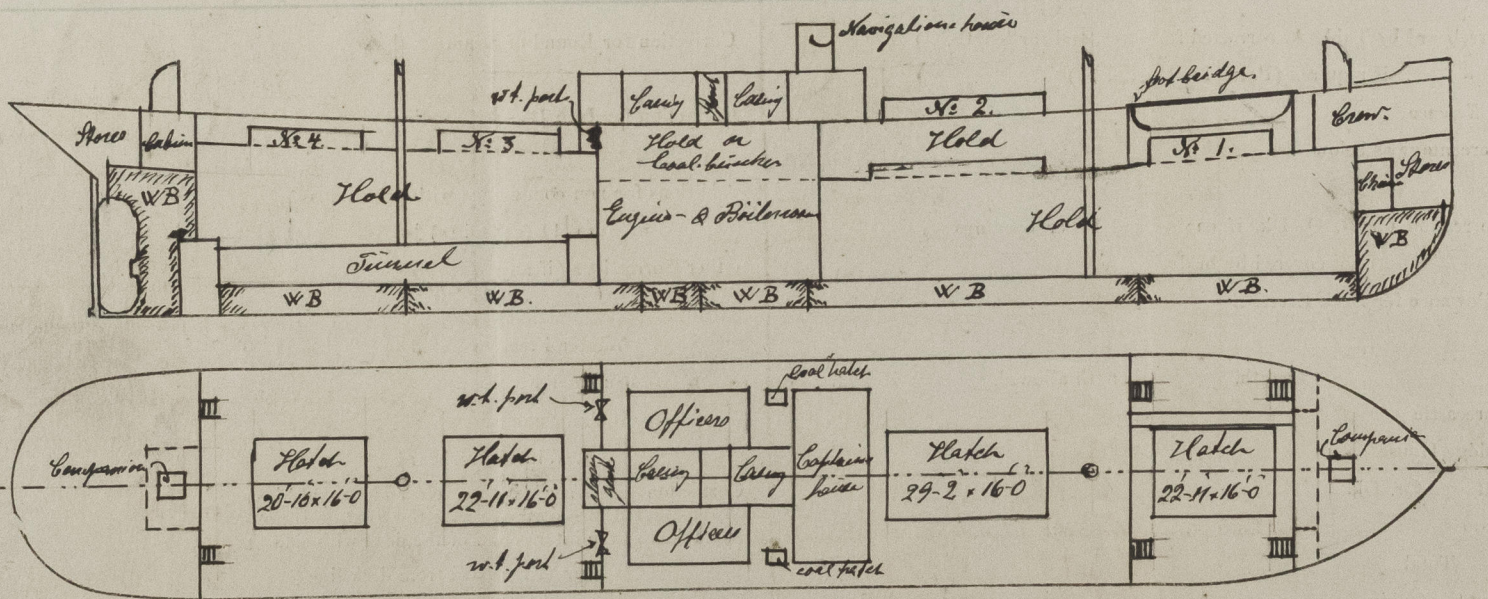 Navigation-house
w.t. port
Casing
Casing
No 2.
foot-bridge.
Crew.
Stores
Cabin
No 4
No 3
Hold or
Coal-buncker
Hold
No 1.
WB
Hold
Engine- & Boilerroom
Hold
Chain
Stores
WB
Tunnel
WB
WB.
WB
WB
WB
WB.
coal hatch
w.t. port
Officers
Companion
Hatch
20-10 x 16-0
Hatch
22-11 x 16-0
Casing
Casing
Captains
house
Hatch
29-2 x 16-0
Hatch
22-11 x 16-0
Companion
Officers
w.t. port
coal hatch